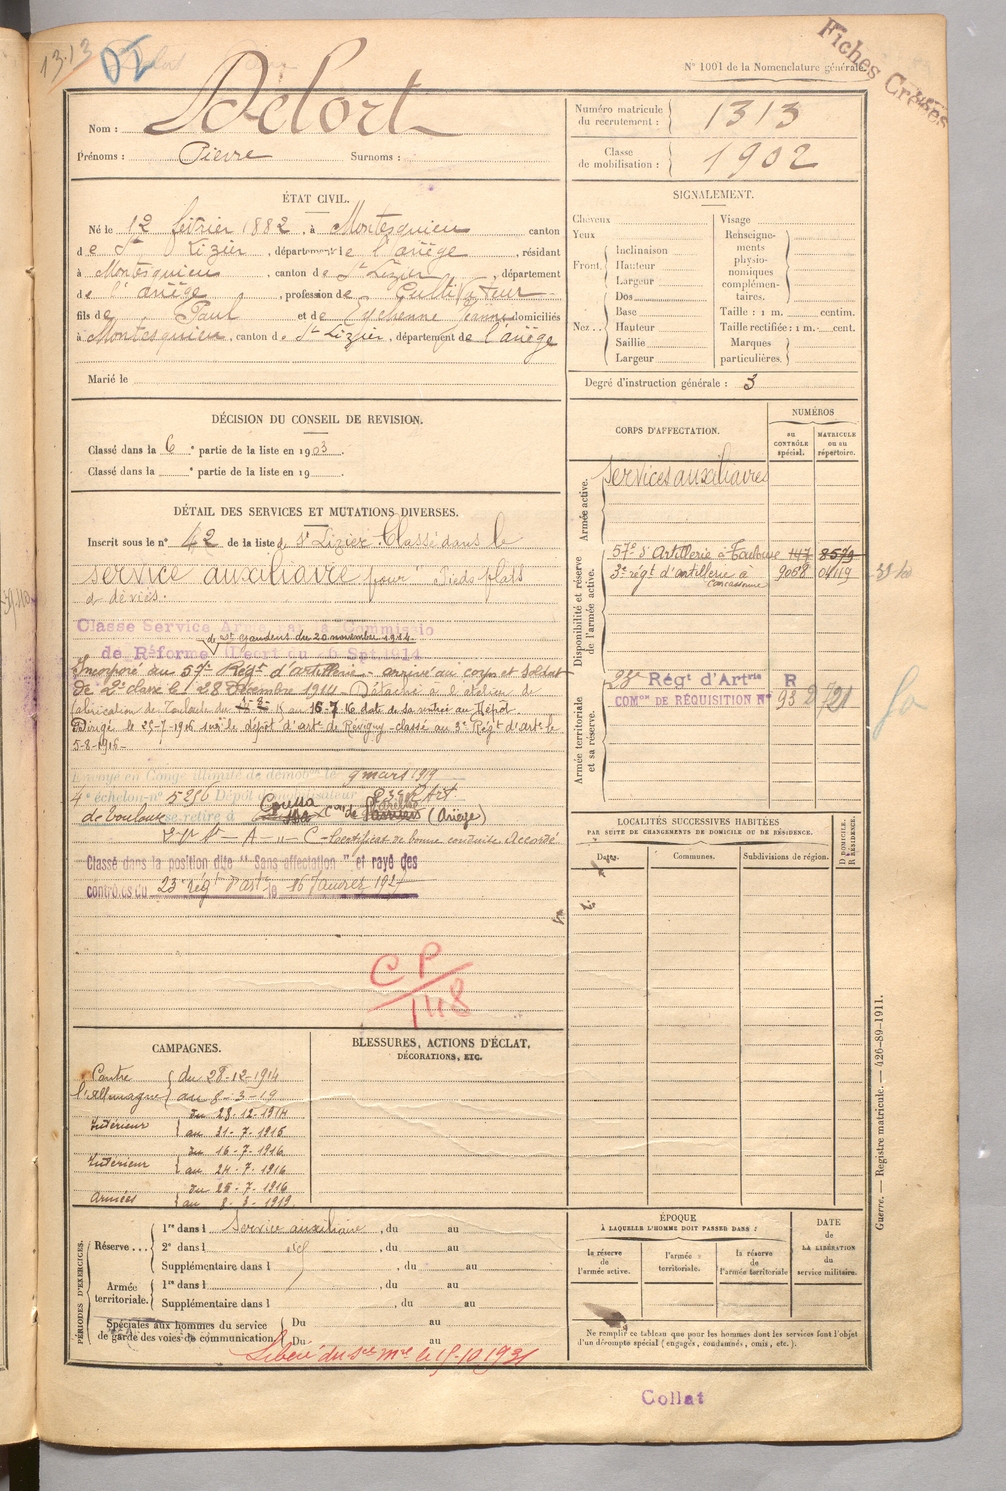 1313
Fiches Créées
N° 1001 de la Nomenclature générale
Nom : Delort
Prénoms : Pierre Surnoms :
Numéro matricule du recrutement : 1313
Classe de mobilisation : 1902
ÉTAT CIVIL.
Né le 12 février 1882, à Montesquieu canton
de St Lizier, département de l'ariège, résidant
à Montesquieu, canton de St Lizier, département
de l'ariège, profession de Cultivateur
fils de Paul et de Eychenne Jeanne domiciliés
à Montesquieu, canton de St Lizier, département de l'ariège
Marié le
SIGNALEMENT.
Cheveux
Yeux
Front. Inclinaison
Hauteur
Largeur
Nez.. Dos
Base
Hauteur
Saillie
Largeur
Visage
Renseignements physionomiques complémentaires.
Taille : 1 m. centim.
Taille rectifiée : 1 m. cent.
Marques particulières.
Degré d'instruction générale : 3
DÉCISION DU CONSEIL DE REVISION.
Classé dans la 6e partie de la liste en 1903.
Classé dans la e partie de la liste en 19
DÉTAIL DES SERVICES ET MUTATIONS DIVERSES.
Inscrit sous le n° 42 de la liste de St Lizier. Classé dans le
service auxiliaire pour Pieds plats
et déviés.
Classe Service Armé
de St Gaudens du 20 novembre 1914
de Réforme (Décret du 26 Spt 1914
Incorporé au 57e Régt d'artillerie - arrivé au corps et soldat
de 2e classe le 28 Décembre 1914 - Détaché à l'atelier de
fabrication de Toulouse du au 16-7-16 dat de sa rentrée au Dépôt.
Dirigé le 25-7-1916 sur le dépôt d'art de Révigny classé au 3e Régt d'arte le
5-8-1916 -
Envoyé en Congé illimité de démob. le 9 mars 1919
4e échelon n° 5256 Dépôt démobilisateur Art
de Toulouse se retire à Coussa Con de (Ariège)
Certificat de bonne conduite Accordé
Classé dans la position dite "Sans affectation" et rayé des
contrôles du 23e régt d'arte le 16 Janvier 1927
CP
148
CORPS D'AFFECTATION.
NUMÉROS
au CONTRÔLE spécial.
MATRICULE ou au répertoire.
Armée active.
services auxiliaires
Disponibilité et réserve de l'armée active.
57e d'Artillerie à Toulouse 147 8579
3e régt d'artillerie à Carcassonne 9068 04119
Armée territoriale et sa réserve.
23e Régt d'Artrie R
COMon DE RÉQUISITION N°
LOCALITÉS SUCCESSIVES HABITÉES
PAR SUITE DE CHANGEMENTS DE DOMICILE OU DE RÉSIDENCE.
Dates. Communes. Subdivisions de région.
D. DOMICILE. R RÉSIDENCE.
CAMPAGNES.
Contre l'Allemagne du 28-12-1914
au 8-3-19
Intérieur du 28-12-1914
au 31-7-1915
Intérieur du 16-7-1916
au 24-7-1916
Armées du 25-7-1916
au 8-3-1919
BLESSURES, ACTIONS D'ÉCLAT,
DÉCORATIONS, ETC.
PÉRIODES D'EXERCICES.
Réserve ... 1re dans l Service auxiliaire, du au
2e dans l , du au
Supplémentaire dans l , du au
Armée territoriale. 1re dans l , du au
Supplémentaire dans l , du au
Spéciales aux hommes du service de garde des voies de communication Du au
Du au
Libéré du sce mre le 15-10 1931
ÉPOQUE
À LAQUELLE L'HOMME DOIT PASSER DANS :
la réserve de l'armée active.
l'armée territoriale.
la réserve de l'armée territoriale
DATE de LA LIBÉRATION du service militaire.
Ne remplir ce tableau que pour les hommes dont les services font l'objet
d'un décompte spécial (engagés, condamnés, omis, etc.).
Guerre. — Registre matricule. — 426-89-1911.
Collat